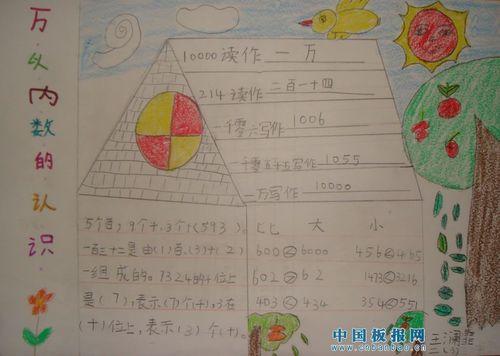 万以内数的认识
10000读作 一万
214读作 二百一十四
一千零六写作 1006
一千零五十五写作 1055
一万写作 10000
5个百,9个十,3个(593)。
一百三十二是由(1)百、(3)十(2)
一组成的。7324的千位上
是(7),表示(7)个(千),3在
(十)位上,表示(3)个(十)。
比 大 小
600<6000 456<465
602>62 1473<3216
403<434 354<551
中国板报网
www.cnbanbao.cn